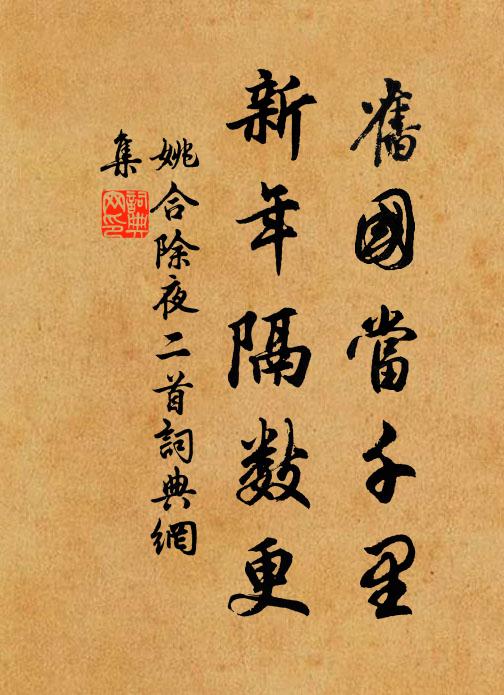 舊國當千里
新年隔數更
姚合除夜二首詞典網
集
詞典
网印